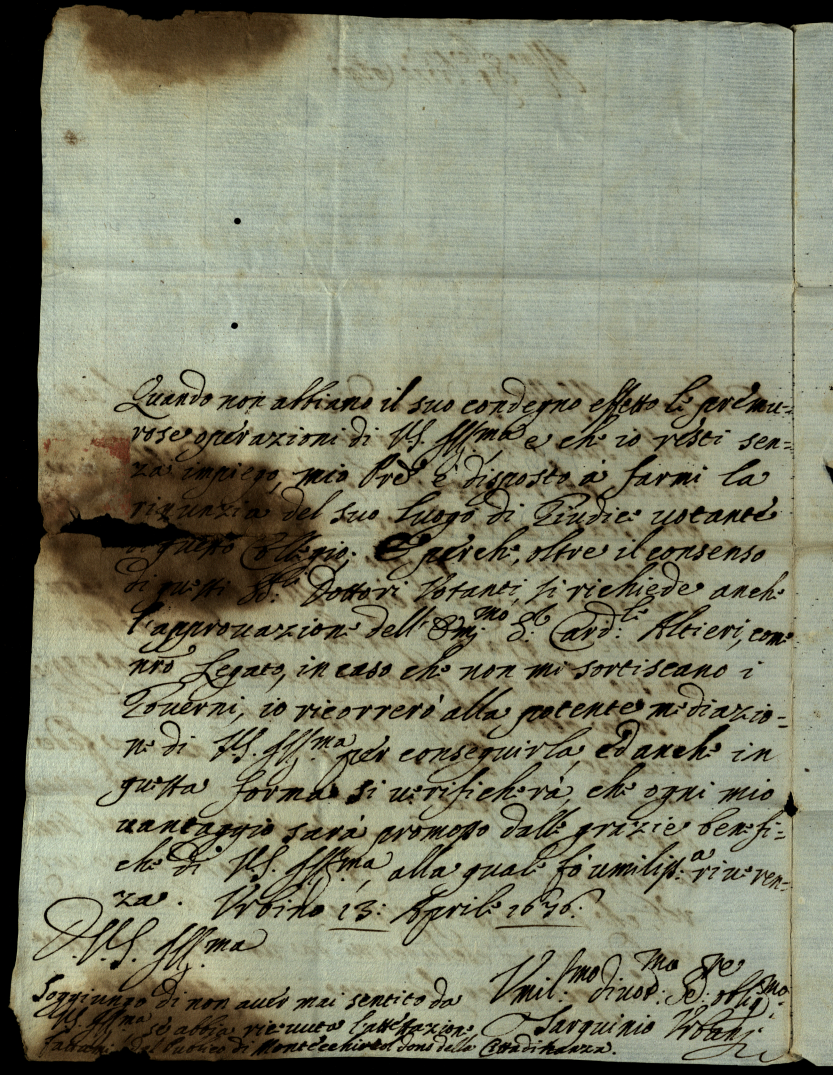 Quando non abbiano il suo condegno effetto le premu=
rose operazioni di V.S. Ill.ma e che io resti sen=
za impiego, mio Pre è disposto à farmi la
rinunzia del suo luogo di Giudice votante
di questo Collegio. E perche, oltre il consenso
di questi SS.ri Dottori Votanti, si richiede anche
l'approvazione dell'Em.mo S.r Card.le Altieri, come
nro Legato, in caso che non mi sortiscano i
Governi, io ricorrerò alla potente mediazio=
ne di V.S. Ill.ma per conseguirla, ed anche in
questa forma si verificherà, che ogni mio
vantaggio sarà promosso dalle grazie benefi=
che di V.S. Ill.ma, alla quale fò umiliss.a riveren=
za. Urbino 13: Aprile 1676:
D. V.S. Ill.ma
Umil.mo Divot.mo Se.re oblig.mo
Tarquinio Urbani
Soggiungo di non aver mai sentito da
V.S. Ill.ma se abbia ricevuta l'attestazione
dal Publico di Montecchio col dono della Cittadinanza.